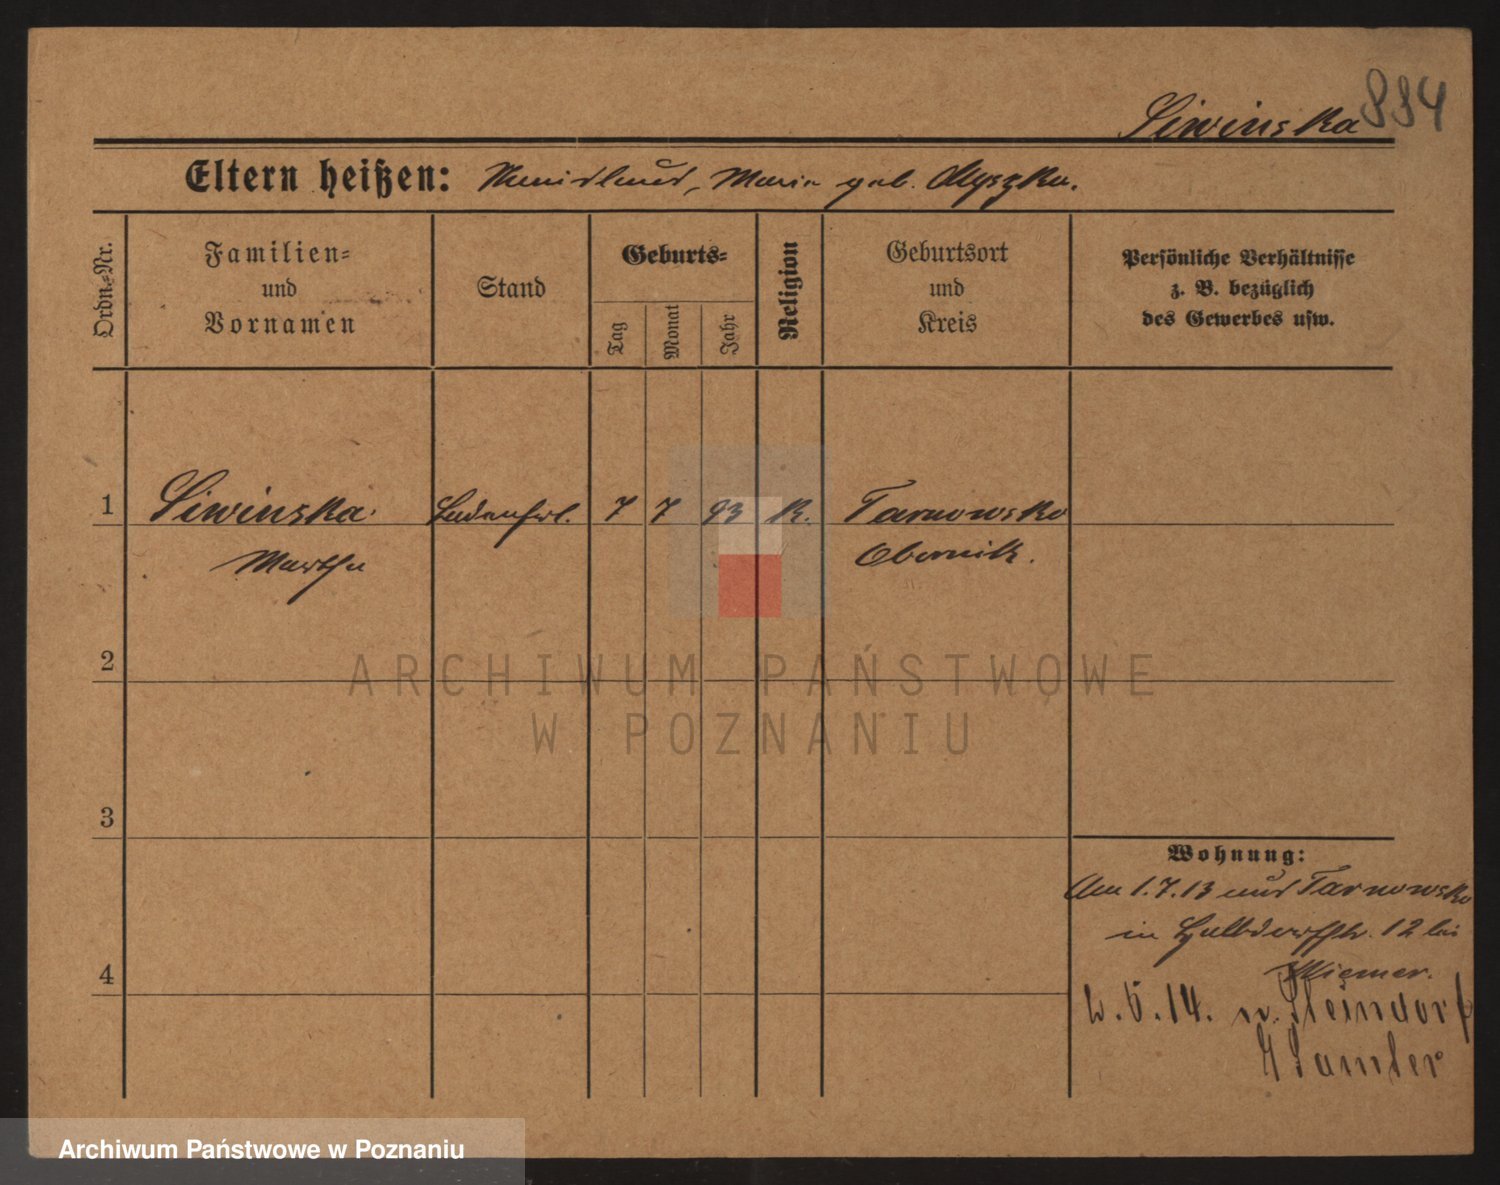 Siwinska 884
Eltern heißen: Stanislaus, Maria geb. Myszka.
Ordn.-Nr.
Familien-
und
Vornamen
Stand
Geburts-
Tag
Monat
Jahr
Religion
Geburtsort
und
Kreis
Persönliche Verhältnisse
z. B. bezüglich
des Gewerbes usw.
1 Siwinska Ladenfrl. 7 7 93 K. Tarnowsko
Martha Obornik.
2
ARCHIWUM PAŃSTWOWE
W POZNANIU
3
Wohnung:
Am 1.7.13 aus Tarnowsko
in Halbdorfstr. 12 bei
4
5.14. n. Steindorf
Samter
Archiwum Państwowe w Poznaniu